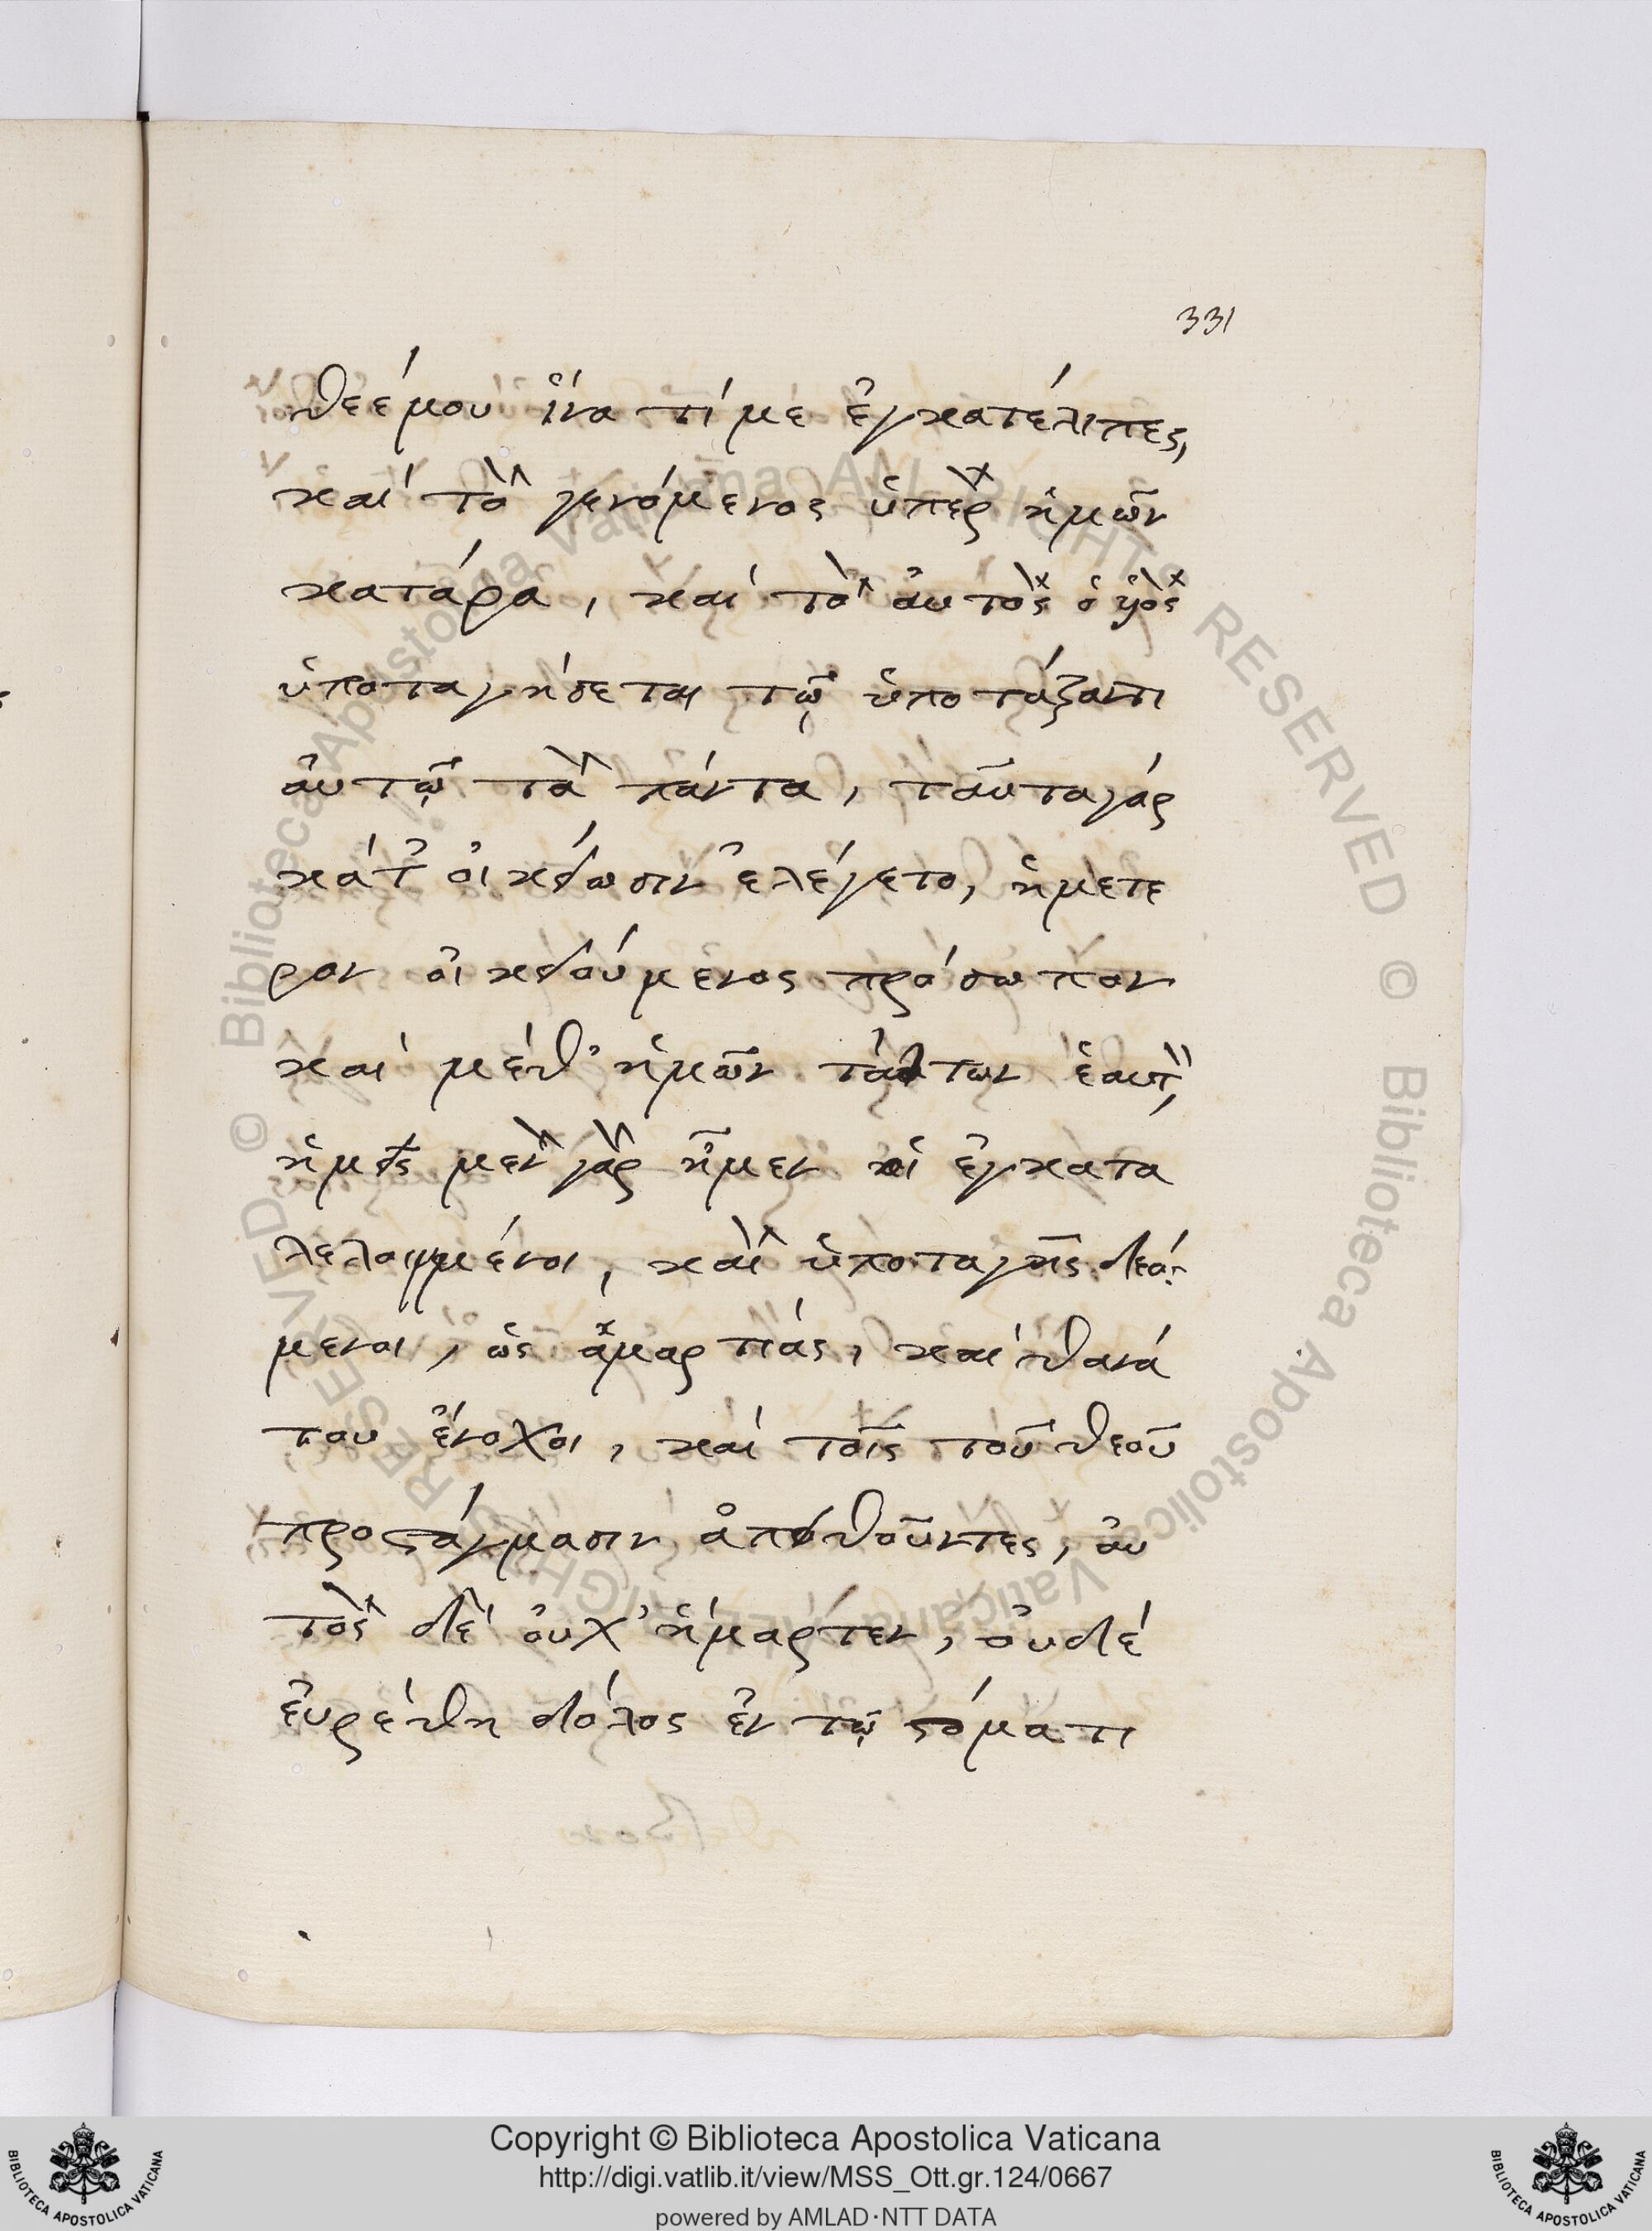 331
θεέ μου ἵνα τί με ἐγκατέλιπες,
καὶ τὸ γενόμενος ὑπὲρ ἡμῶν
κατάρα, καὶ τὸ αὐτὸς ὁ υἱὸς
ὑποταγήσεται τῷ ὑποτάξαντι
αὐτῷ τὰ πάντα, ταῦτα γάρ
κάτ' οἰκείωσιν ἐλέγετο, ἡμέτε
ρον οἰκειούμενος πρόσωπον
καὶ μέθ' ἡμῶν τάττων ἑαυτ,
ἡμεῖς μὲν γὰρ ἦμεν οἱ ἐγκατα
λελοιμμένοι, καὶ ὑποταγῆς δεό-
μενοι, ὡς ἁμαρτίας, καὶ θανά
του ἔνοχοι, καὶ τοῖς τοῦ θεοῦ
προστάγμασιν ἀπειθοῦντες, αὐ
τὸς δὲ οὐχ' ἥμαρτεν, οὐδέ
εὑρέθη δόλος ἐν τῷ στόματι
© Biblioteca Apostolica Vaticana ALL RIGHTS RESERVED
© Biblioteca Apostolica Vaticana ALL RIGHTS RESERVED
Copyright © Biblioteca Apostolica Vaticana
http://digi.vatlib.it/view/MSS_Ott.gr.124/0667
powered by AMLAD·NTT DATA
BIBLIOTECA APOSTOLICA VATICANA
BIBLIOTECA APOSTOLICA VATICANA